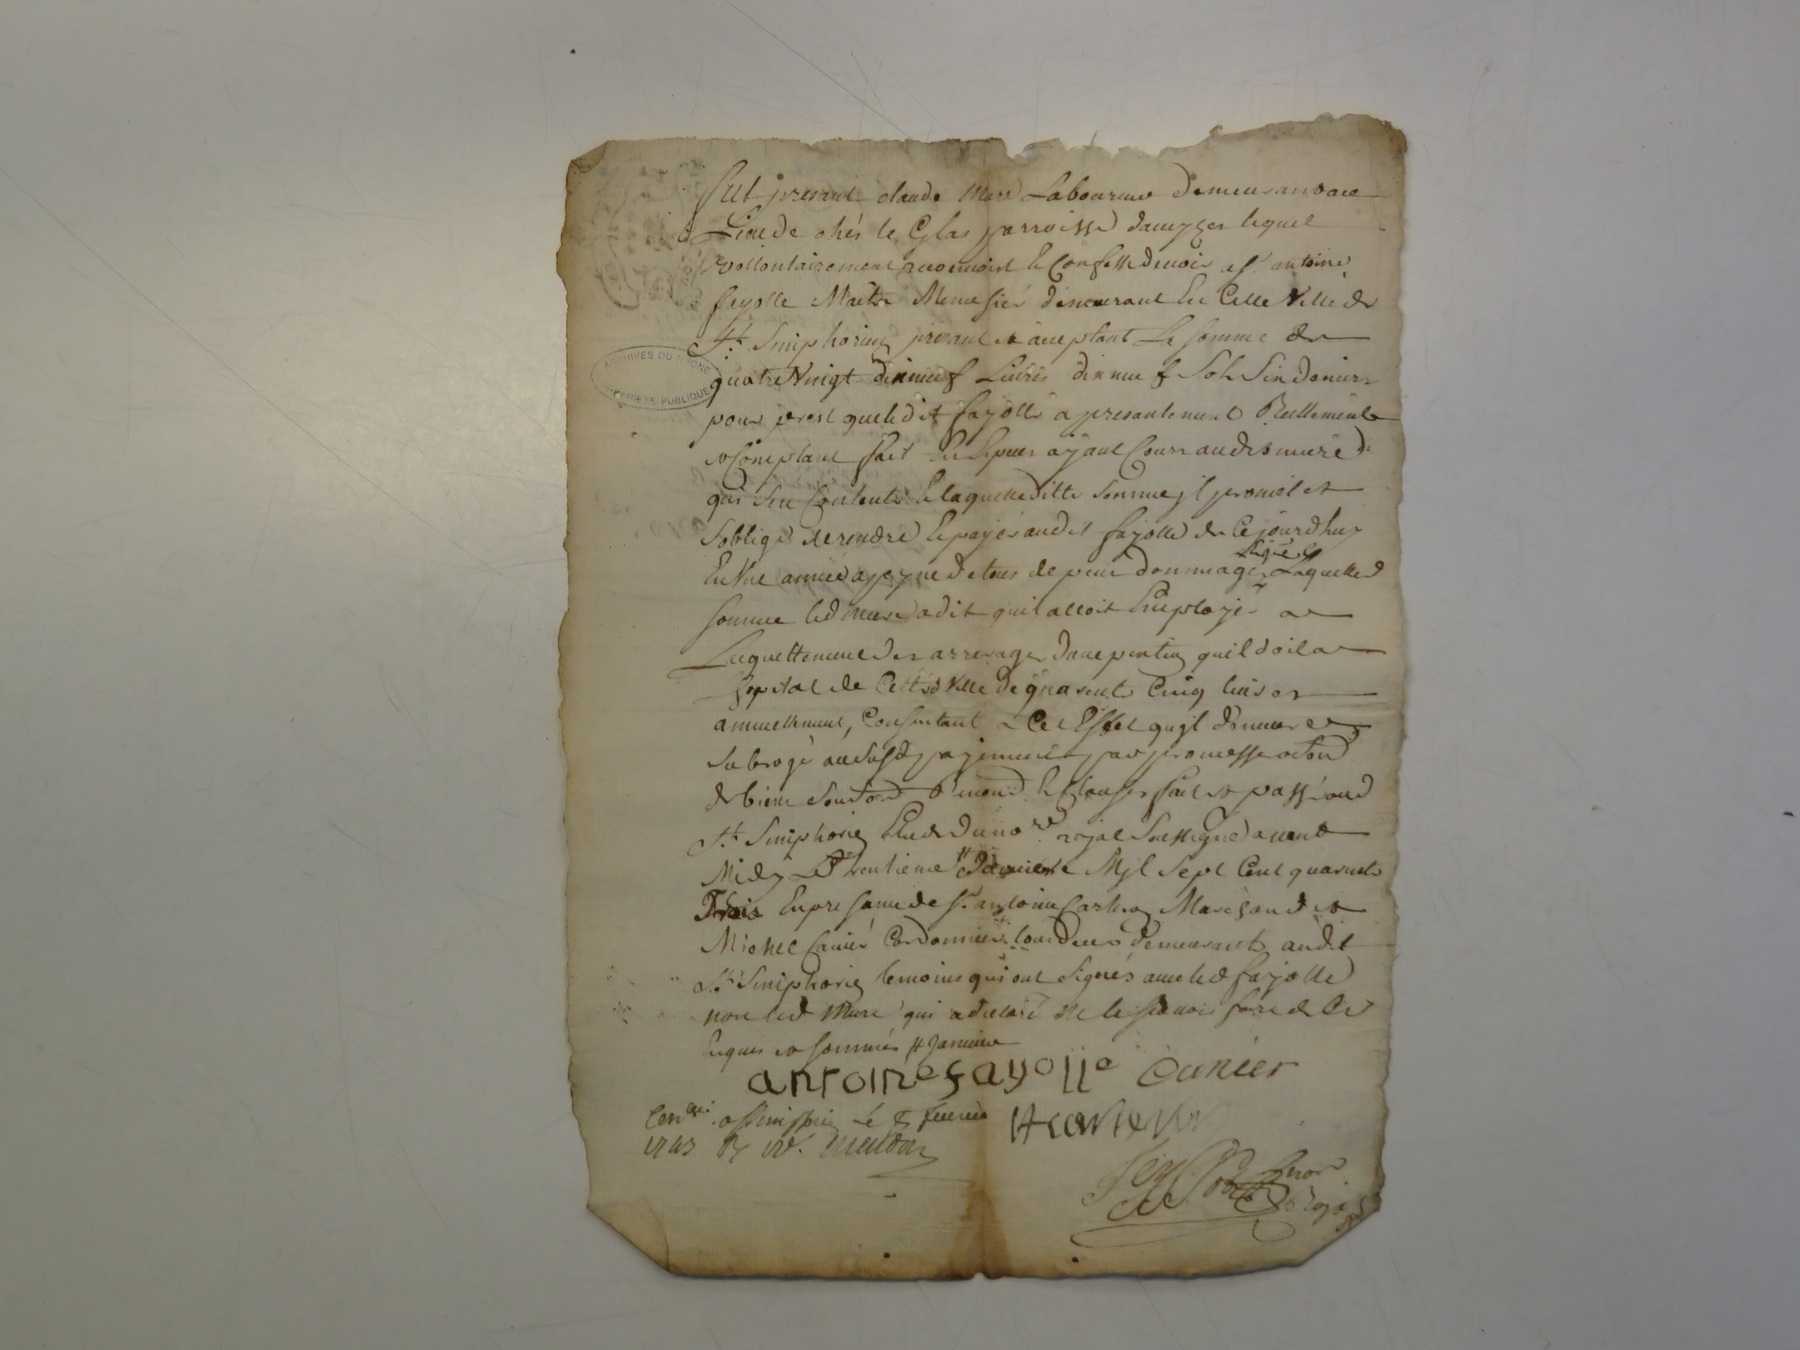 fut present claude Mure Laboureur demeurant au
Lieu de chés le Glas parroisse daveyzes lequel
vollontairement a reconneu et Confesse devoir a sr. antoine
fayolle Maitre Menusier demeurant En Cette Ville de
St. Simphorien present et aceptant La somme de
quatre Vingt dixneuf Livres dixneuf Sols Six deniers
pour prest que ledit fayolle a presentement Reellement
et Comptant fait En Espesses ayant Cours audit mure
qui sen Contente Et laquelle ditte somme jl promet et
soblige de rendre Et payer audit fayolle de Ce jourdhuy
En Une année a peyne de tous depens dommages
Laquelle
somme led mure a dit quil alloit Employer a
Lacquittement des arrerages dune pention quil doit a
hopital de Cette Ville de quarente Cinq livres
annuellement, Consentant a Cet Effet qujl demeure
subrogé payement par promesse
de biens Et Clauses fait et passé aud
St. Simphorien Etude du nore. royal Soussigné avant
Midy Le trentieme Janvier Mjl Sept Cent quarente
Trois En presance de sr. antoine Marchand et
Michel Cunier Cordonnier tous deux demeurants audit
St. Simphorien temoins qui ont signés avec led fayolle
non led Mure qui a declaré ne le scavoir faire de Ce
Enquis et sommés # Janvier
antoine fayolle Cunier
le fevrier
1743